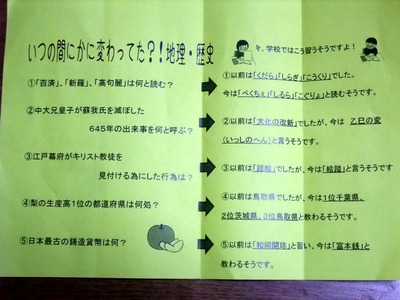 いつの間にかに変わってた?!地理・歴史
今、学校ではこう習うそうですよ!
①「百済」、「新羅」、「高句麗」は何と読む?
①以前は「くだら」「しらぎ」「こうくり」でした。
今は「ぺくちぇ」「しるら」「こぐりょ」と読むそうです。
②中大兄皇子が蘇我氏を滅ぼした
645年の出来事を何と呼ぶ?
②以前は「大化の改新」でしたが、今は 乙巳の変
(いっしのへん)と言うそうです。
③江戸幕府がキリスト教徒を
見付ける為にした行為は?
③以前は「踏絵」でしたが、今は「絵踏」と言うそうです
④梨の生産高1位の都道府県は何処?
④以前は鳥取県でしたが、今は1位千葉県、
2位茨城県、3位鳥取県と教わるそうです。
⑤日本最古の鋳造貨幣は何?
⑤以前は「和同開珎」と習い、今は「富本銭」と
教わるそうです。